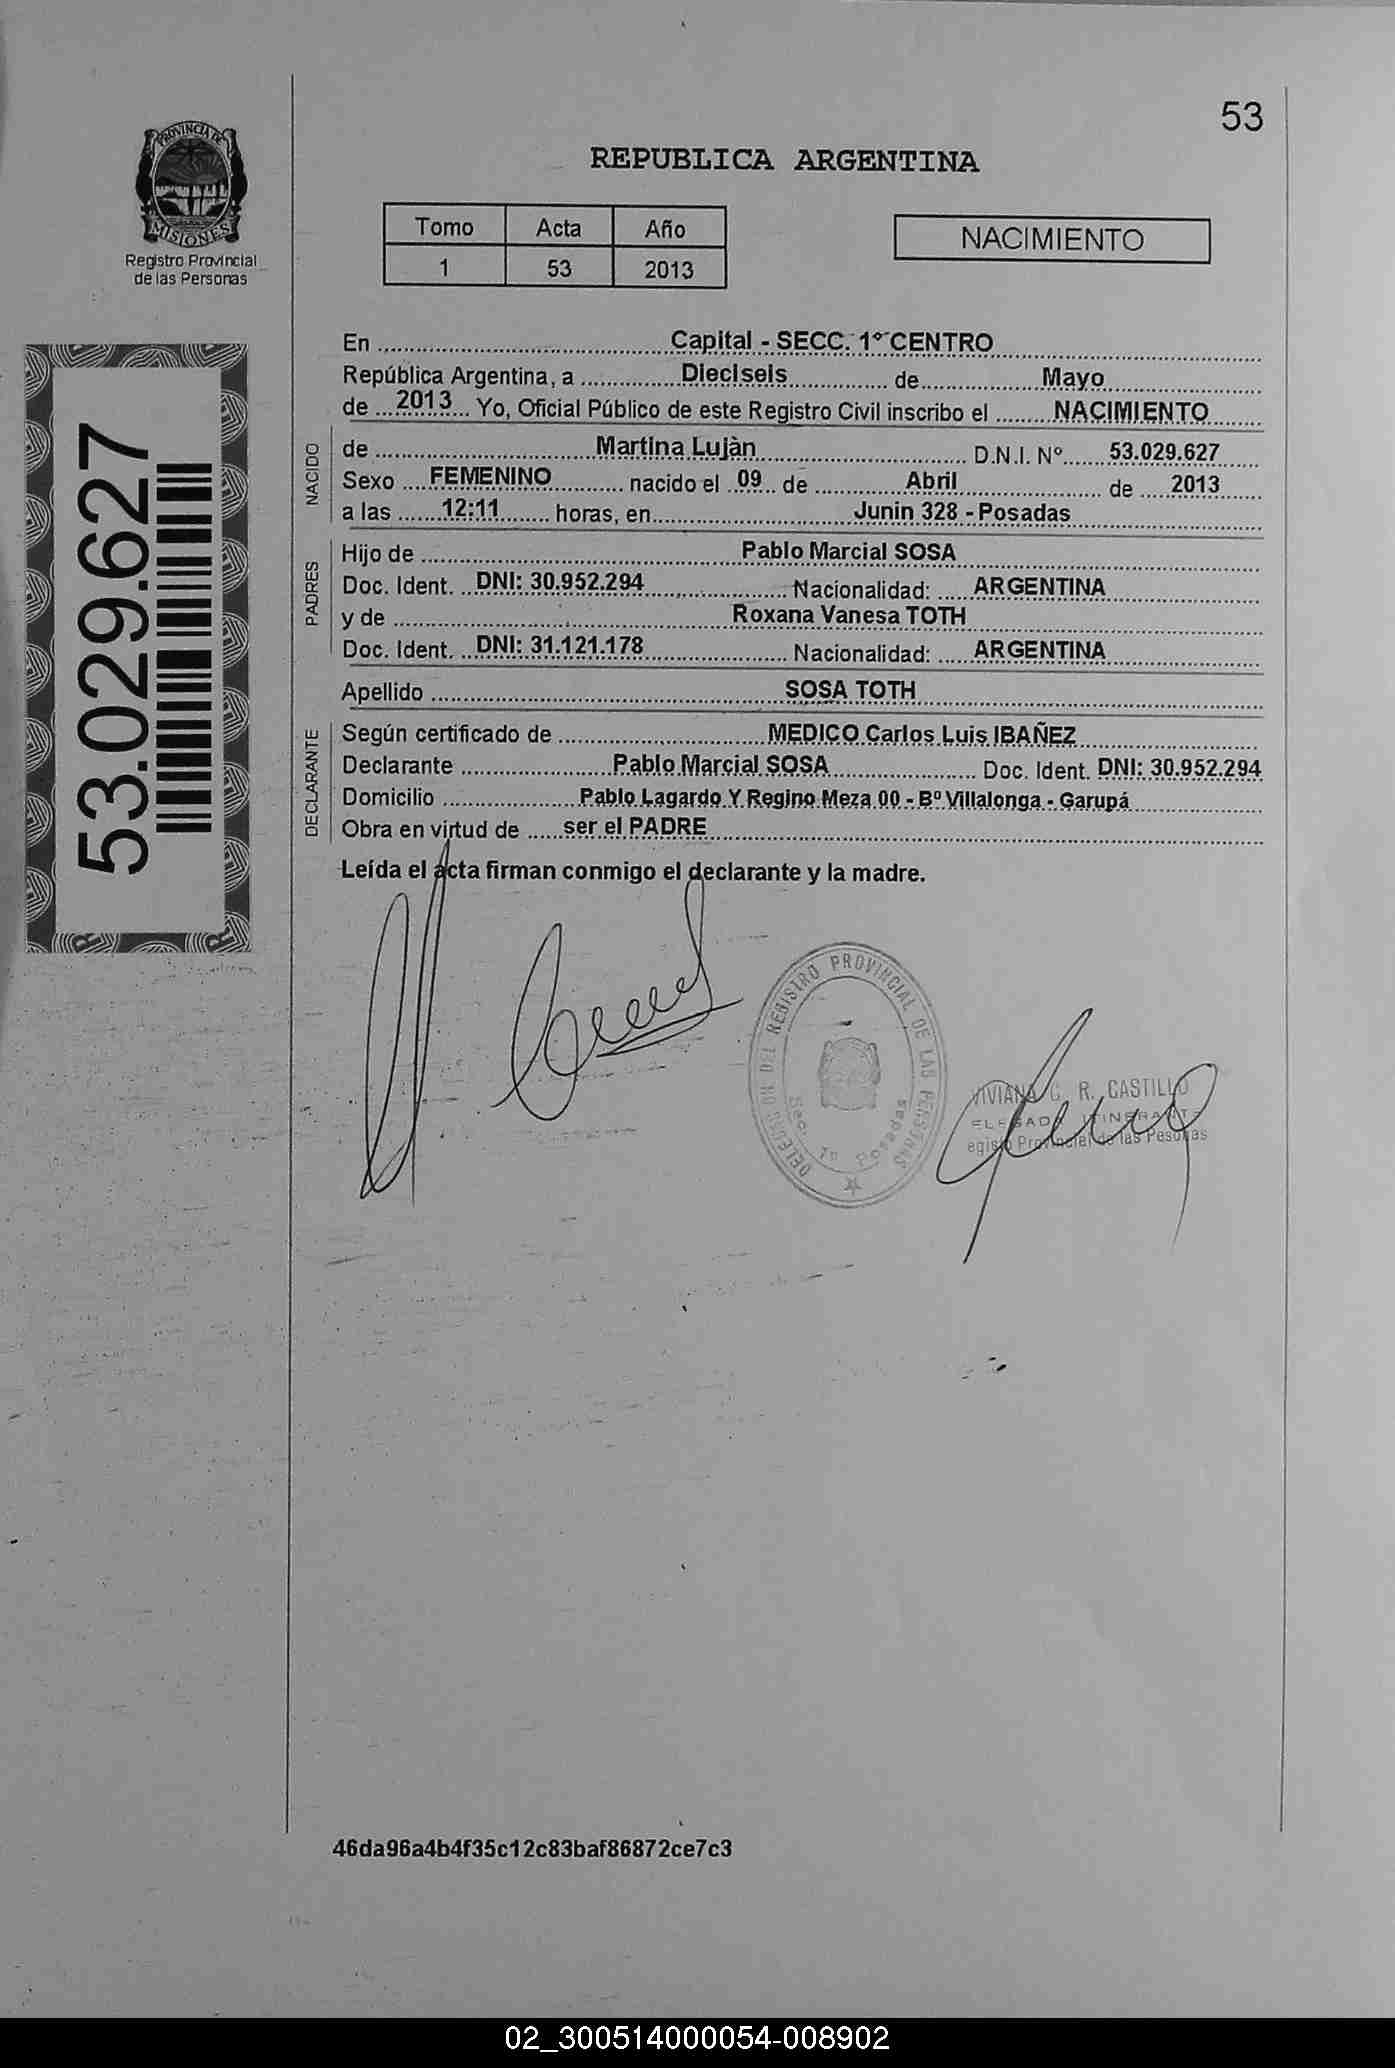 53
REPUBLICA ARGENTINA
PROVINCIA DE
MISIONES
Registro Provincial
de las Personas
Tomo Acta Año
1 53 2013
NACIMIENTO
53.029.627
En Capital - SECC. 1º CENTRO
República Argentina, a Dieciseis de Mayo
de 2013 Yo, Oficial Público de este Registro Civil inscribo el NACIMIENTO
NACIDO
de Martina Lujàn D.N.I. Nº 53.029.627
Sexo FEMENINO nacido el 09 de Abril de 2013
a las 12:11 horas, en Junin 328 - Posadas
PADRES
Hijo de Pablo Marcial SOSA
Doc. Ident. DNI: 30.952.294 Nacionalidad: ARGENTINA
y de Roxana Vanesa TOTH
Doc. Ident. DNI: 31.121.178 Nacionalidad: ARGENTINA
Apellido SOSA TOTH
DECLARANTE
Según certificado de MEDICO Carlos Luis IBAÑEZ
Declarante Pablo Marcial SOSA Doc. Ident. DNI: 30.952.294
Domicilio Pablo Lagardo Y Regino Meza 00 - Bº Villalonga - Garupá
Obra en virtud de ser el PADRE
Leída el acta firman conmigo el declarante y la madre.
DEL REGISTRO PROVINCIAL DE LAS PERSONAS
Sec. 1º Posadas
VIVIANA C. R. CASTILLO
46da96a4b4f35c12c83baf86872ce7c3
02_300514000054-008902